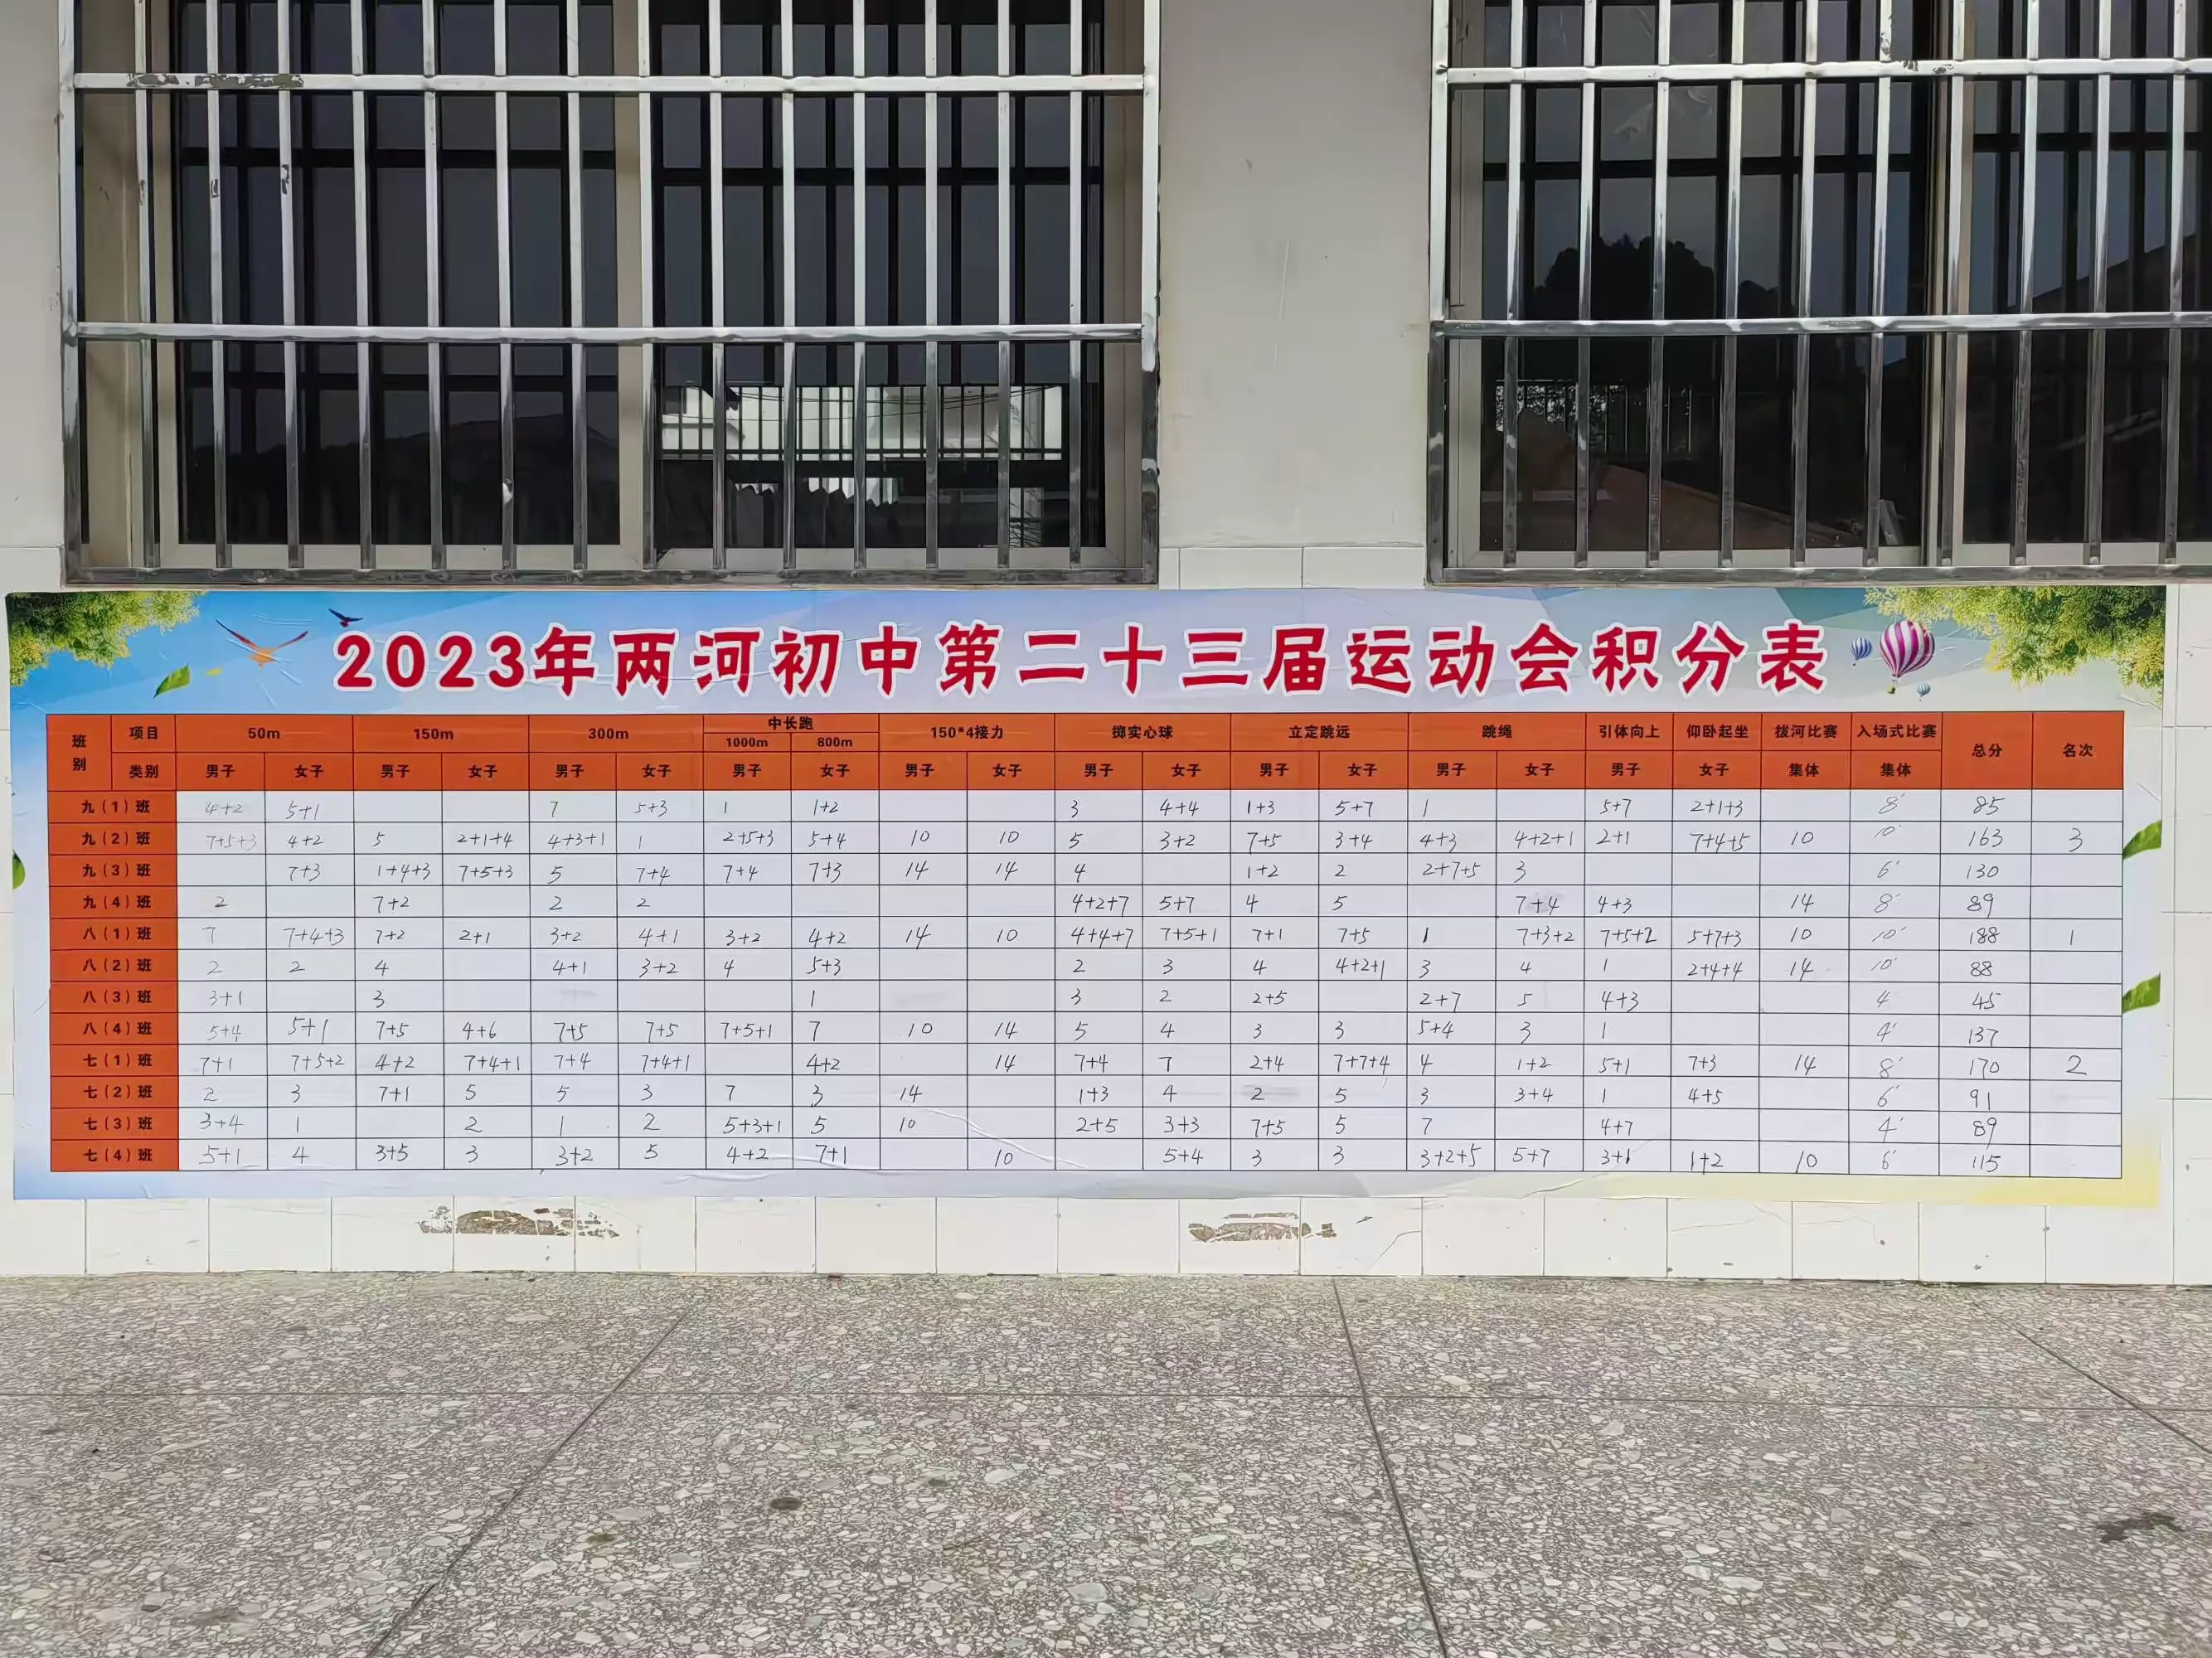 2023年两河初中第二十三届运动会积分表
班别 项目 50m 150m 300m 中长跑 150*4接力 掷实心球 立定跳远 跳绳 引体向上 仰卧起坐 拔河比赛 入场式比赛 总分 名次
1000m 800m
类别 男子 女子 男子 女子 男子 女子 男子 女子 男子 女子 男子 女子 男子 女子 男子 女子 男子 女子 集体 集体
九(1)班 4+2 5+1 7 5+3 1 1+2 3 4+4 1+3 5+7 1 5+7 2+1+3 8' 85
九(2)班 7+5+3 4+2 5 2+1+4 4+3+1 1 2+5+3 5+4 10 10 5 3+2 7+5 3+4 4+3 4+2+1 2+1 7+4+5 10 10' 163 3
九(3)班 7+3 1+4+3 7+5+3 5 7+4 7+4 7+3 14 14 4 1+2 2 2+7+5 3 6' 130
九(4)班 2 7+2 2 2 4+2+7 5+7 4 5 7+4 4+3 14 8' 89
八(1)班 7 7+4+3 7+2 2+1 3+2 4+1 3+2 4+2 14 10 4+4+7 7+5+1 7+1 7+5 1 7+3+2 7+5+2 5+7+3 10 10' 188 1
八(2)班 2 2 4 4+1 3+2 4 5+3 2 3 4 4+2+1 3 4 1 2+4+4 14 10' 88
八(3)班 3+1 3 1 3 2 2+5 2+7 5 4+3 4' 45
八(4)班 5+4 5+1 7+5 4+6 7+5 7+5 7+5+1 7 10 14 5 4 3 3 5+4 3 1 4' 137
七(1)班 7+1 7+5+2 4+2 7+4+1 7+4 7+4+1 4+2 14 7+4 7 2+4 7+7+4 4 1+2 5+1 7+3 14 8' 170 2
七(2)班 2 3 7+1 5 5 3 7 3 14 1+3 4 2 5 3 3+4 1 4+5 6' 91
七(3)班 3+4 1 2 1 2 5+3+1 5 10 2+5 3+3 7+5 5 7 4+7 4' 89
七(4)班 5+1 4 3+5 3 3+2 5 4+2 7+1 10 5+4 3 3 3+2+5 5+7 3+1 1+2 10 6' 115